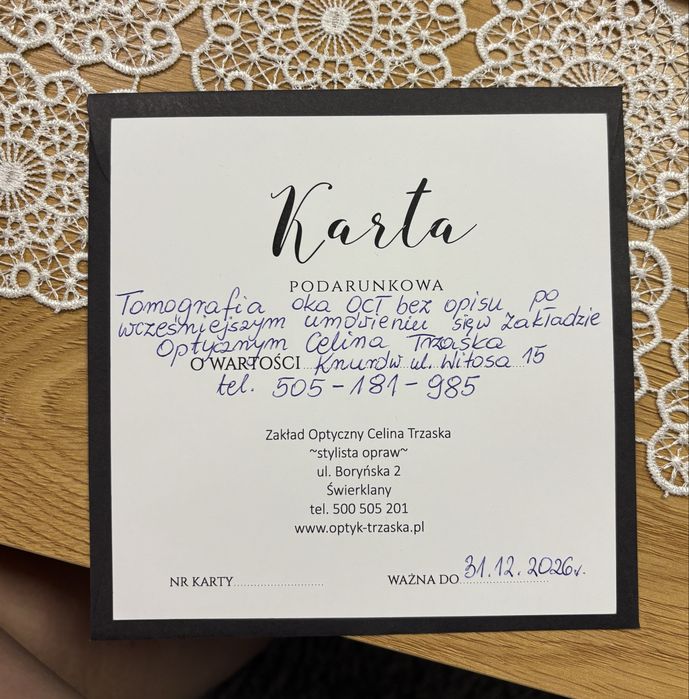 Karta
PODARUNKOWA
Tomografia oka OCT bez opisu po
wcześniejszym umówieniu się w Zakładzie
Optycznym Celina Trzaska
O WARTOŚCI Knurów ul. Witosa 15
tel. 505-181-985
Zakład Optyczny Celina Trzaska
~stylista opraw~
ul. Boryńska 2
Świerklany
tel. 500 505 201
www.optyk-trzaska.pl
NR KARTY........................ WAŻNA DO 31.12.2026r.